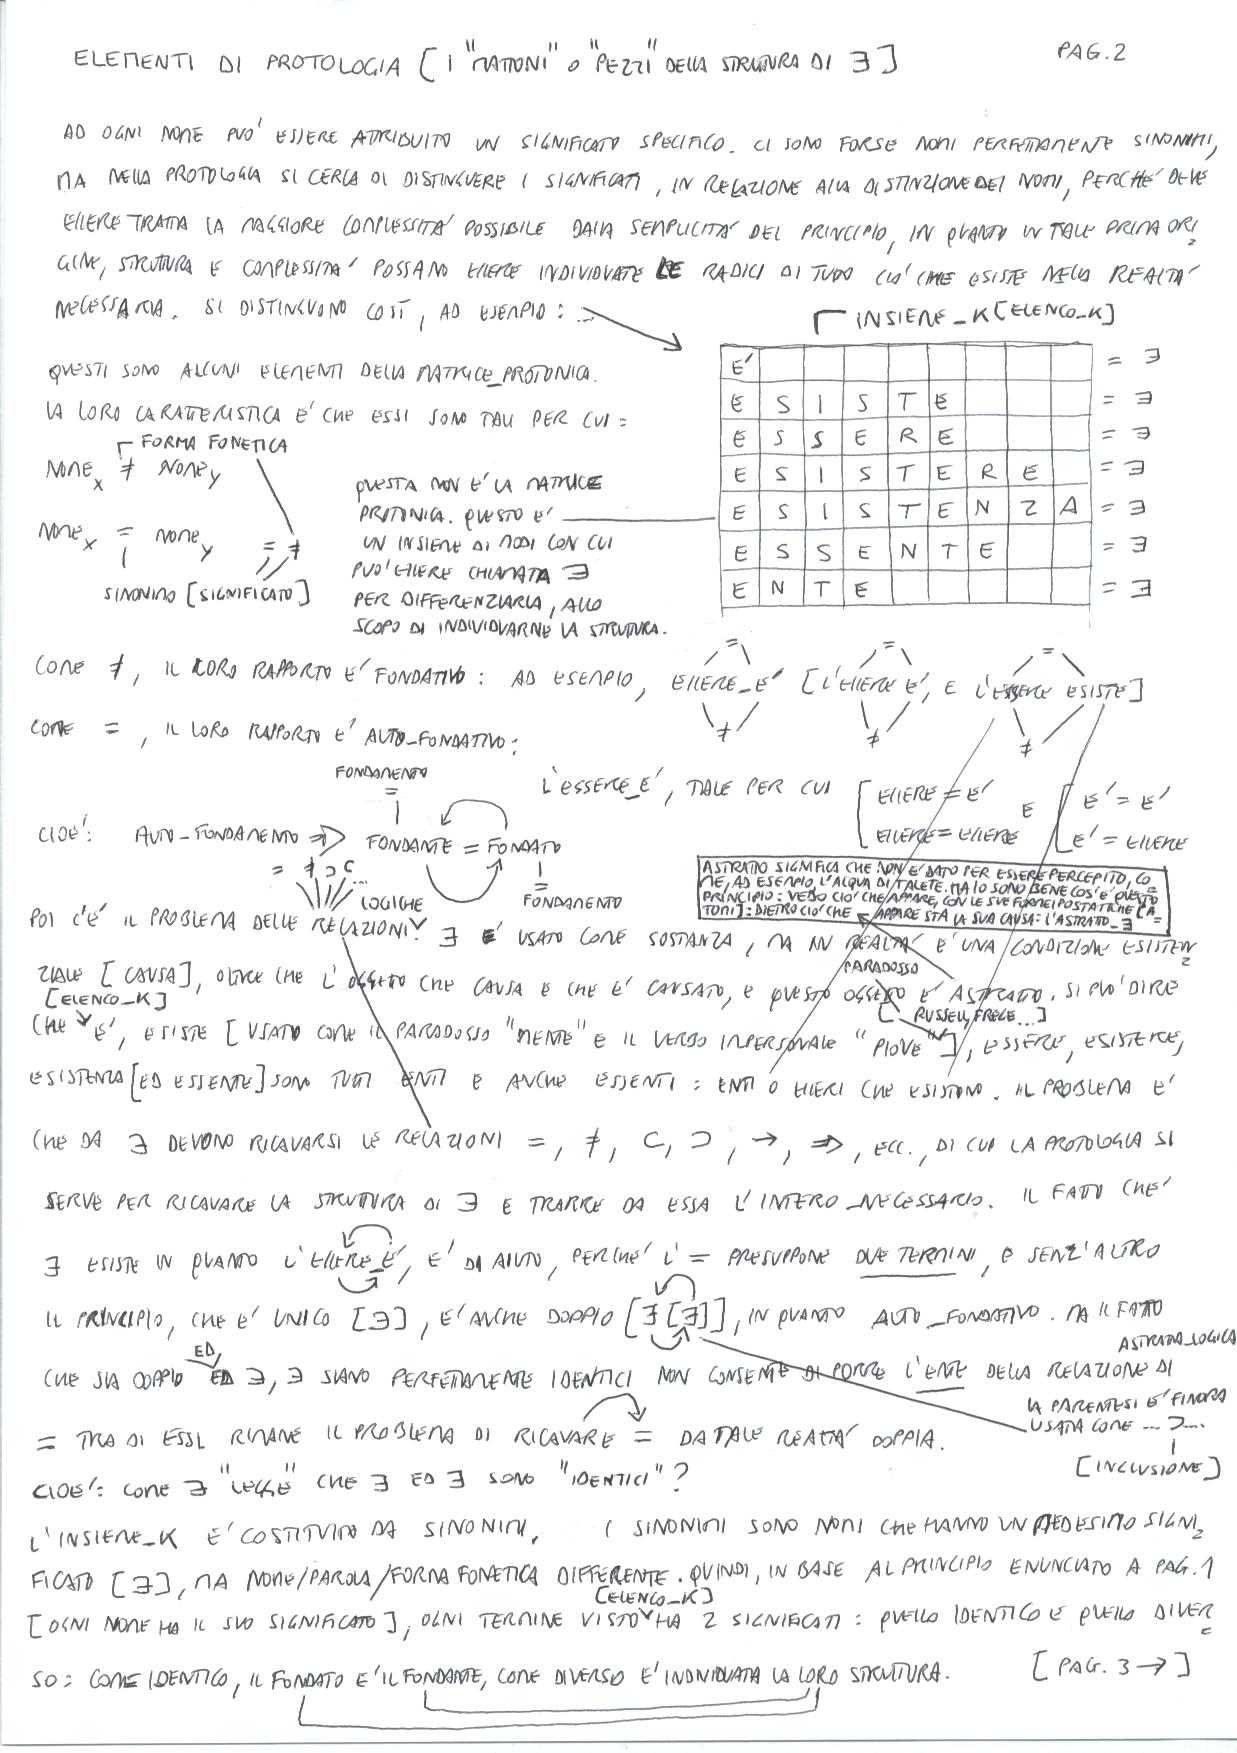 ELEMENTI DI PROTOLOGIA [I "MATTONI" O "PEZZI" DELLA STRUTTURA DI ∃]
PAG. 2
AD OGNI NOME PUO' ESSERE ATTRIBUITO UN SIGNIFICATO SPECIFICO. CI SONO FORSE NOMI PERFETTAMENTE SINONIMI,
MA NELLA PROTOLOGIA SI CERCA DI DISTINGUERE I SIGNIFICATI, IN RELAZIONE ALLA DISTINZIONE DEI NOMI, PERCHE' DEVE
ESSERE TRATTA LA MAGGIORE COMPLESSITA' POSSIBILE DALLA SEMPLICITA' DEL PRINCIPIO, IN QUANTO IN TALE PRIMA ORI=
GINE, STRUTTURA E COMPLESSITA' POSSANO ESSERE INDIVIDUATE LE RADICI DI TUTTO CIO' CHE ESISTE NELLA REALTA'
NECESSARIA. SI DISTINGUONO COSI', AD ESEMPIO:
INSIEME_K [ELENCO_K]
E' = ∃
ESISTE = ∃
ESSERE = ∃
ESISTERE = ∃
ESISTENZA = ∃
ESSENTE = ∃
ENTE = ∃
QUESTI SONO ALCUNI ELEMENTI DELLA MATRICE_PROTONICA.
LA LORO CARATTERISTICA E' CHE ESSI SONO TALI PER CUI =
FORMA FONETICA
NOME x ≠ NOME y
NOME x = NOME y
= ≠
SINONIMO [SIGNIFICATO]
QUESTA NON E' LA MATRICE
PROTONICA. QUESTO E'
UN INSIEME DI MODI CON CUI
PUO' ESSERE CHIAMATA ∃
PER DIFFERENZIARLA, ALLO
SCOPO DI INDIVIDUARNE LA STRUTTURA.
= = =
COME ≠, IL LORO RAPPORTO E' FONDATIVO: AD ESEMPIO, ESSERE_E' [L'ESSERE E', E L'ESSERE ESISTE]
≠ ≠ ≠
COME =, IL LORO RAPPORTO E' AUTO_FONDATIVO:
L'ESSERE_E', TALE PER CUI [ESSERE = E' E [E' = E'
ESSERE = ESSERE E' = ESSERE
FONDAMENTO
=
CIOE': AUTO_FONDAMENTO ⇒ FONDANTE = FONDATO
=
FONDAMENTO
= ≠ ⊃ ⊂ ...
LOGICHE
ASTRATTO SIGNIFICA CHE NON E' DATO PER ESSERE PERCEPITO, CO
ME, AD ESEMPIO, L'ACQUA DI TALETE. MA IO SONO BENE COS'E' QUESTO
PRINCIPIO: VEDO CIO' CHE APPARE, CON LE SUE FORME IPOSTATICHE [A=
TOMI]: DIETRO CIO' CHE APPARE STA LA SUA CAUSA: L'ASTRATTO_∃
POI C'E' IL PROBLEMA DELLE RELAZIONI. ∃ E' USATO COME SOSTANZA, MA IN REALTA' E' UNA CONDIZIONE ESISTEN=
PARADOSSO
ZIALE [CAUSA], OLTRE CHE L'OGGETTO CHE CAUSA E CHE E' CAUSATO, E QUESTO OGGETTO E' ASTRATTO. SI PUO' DIRE
[ELENCO_K]
[RUSSELL, FREGE...]
CHE E', ESISTE [USATO COME IL PARADOSSO "MENTE" E IL VERBO IMPERSONALE "PIOVE"], ESSERE, ESISTERE,
ESISTENZA [ED ESSENTE] SONO TUTTI ENTI E ANCHE ESSENTI: ENTI O ESSERI CHE ESISTONO. IL PROBLEMA E'
CHE DA ∃ DEVONO RICAVARSI LE RELAZIONI =, ≠, ⊂, ⊃, →, ⇒, ECC., DI CUI LA PROTOLOGIA SI
SERVE PER RICAVARE LA STRUTTURA DI ∃ E TRARRE DA ESSA L'INTERO_NECESSARIO. IL FATTO CHE
∃ ESISTE IN QUANTO L'ESSERE_E', E' DI AIUTO, PERCHE' L' = PRESUPPONE DUE TERMINI, E SENZ'ALTRO
IL PRINCIPIO, CHE E' UNICO [∃], E' ANCHE DOPPIO [∃[∃]], IN QUANTO AUTO_FONDATIVO. MA IL FATTO
ASTRATTA_LOGICA
ED,
CHE SIA DOPPIO ED ∃, ∃ SIANO PERFETTAMENTE IDENTICI NON CONSENTE DI PORRE L'ENTE DELLA RELAZIONE DI
LA PARENTESI E' FINORA
USATA COME ...⊃...
[INCLUSIONE]
= TRA DI ESSI. RIMANE IL PROBLEMA DI RICAVARE = DA TALE REALTA' DOPPIA.
CIOE': COME ∃ "LEGGE" CHE ∃ ED ∃ SONO "IDENTICI"?
L'INSIEME_K E' COSTITUITO DA SINONIMI. I SINONIMI SONO NOMI CHE HANNO UN MEDESIMO SIGNI=
FICATO [∃], MA NOME/PAROLA/FORMA FONETICA DIFFERENTE. QUINDI, IN BASE AL PRINCIPIO ENUNCIATO A PAG. 1
[ELENCO_K]
[OGNI NOME HA IL SUO SIGNIFICATO], OGNI TERMINE VISTO HA 2 SIGNIFICATI: QUELLO IDENTICO E QUELLO DIVER=
SO: COME IDENTICO, IL FONDATO E' IL FONDANTE, COME DIVERSO E' INDIVIDUATA LA LORO STRUTTURA.
[PAG. 3 →]